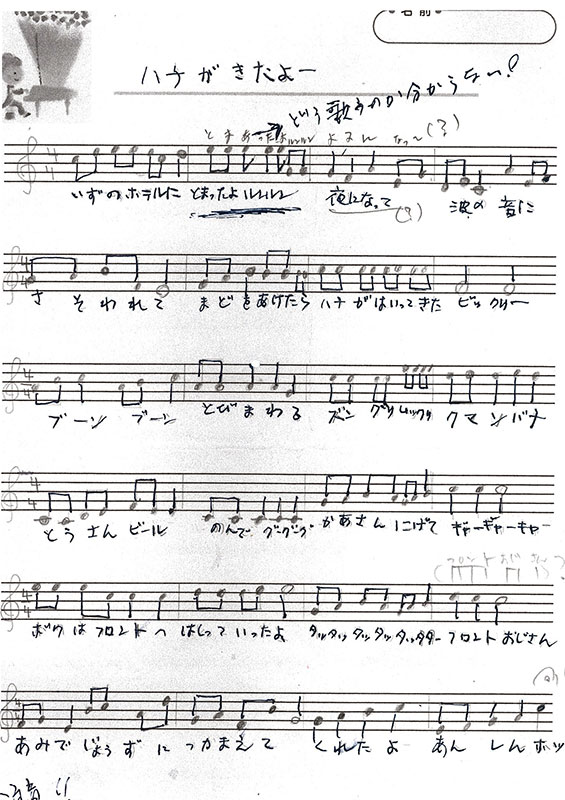 名前
ハチがきたよー
という歌うのか分からない!
とまあったよルルルン よるん なっ〜(ろ)
いずのホテルに とまったよルルルン 夜になって 波の音に
さそわれて まどをあけたら ハチがはいってきた ビックリー
ブーン ブーン とびまわる ズングリムックリ クマンバチ
とうさん ビール のんで グーグーグー かあさん にげて ギャーギャーギャー
(フロントおじさん)?
ボクはフロントへ はしっていったよ タッタッタッタッタッタター フロントおじさん
あみで じょうずに つかまえて くれたよ あんしんホッ